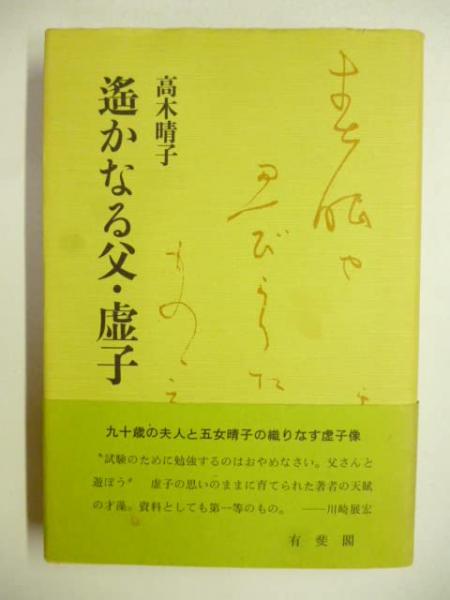 高木晴子
遙かなる父・虚子
九十歳の夫人と五女晴子の織りなす虚子像
〝試験のために勉強するのはおやめなさい。父さんと
遊ぼう〟 虚子の思いのままに育てられた著者の天賦
の才藻。資料としても第一等のもの。 ――川崎展宏
有斐閣